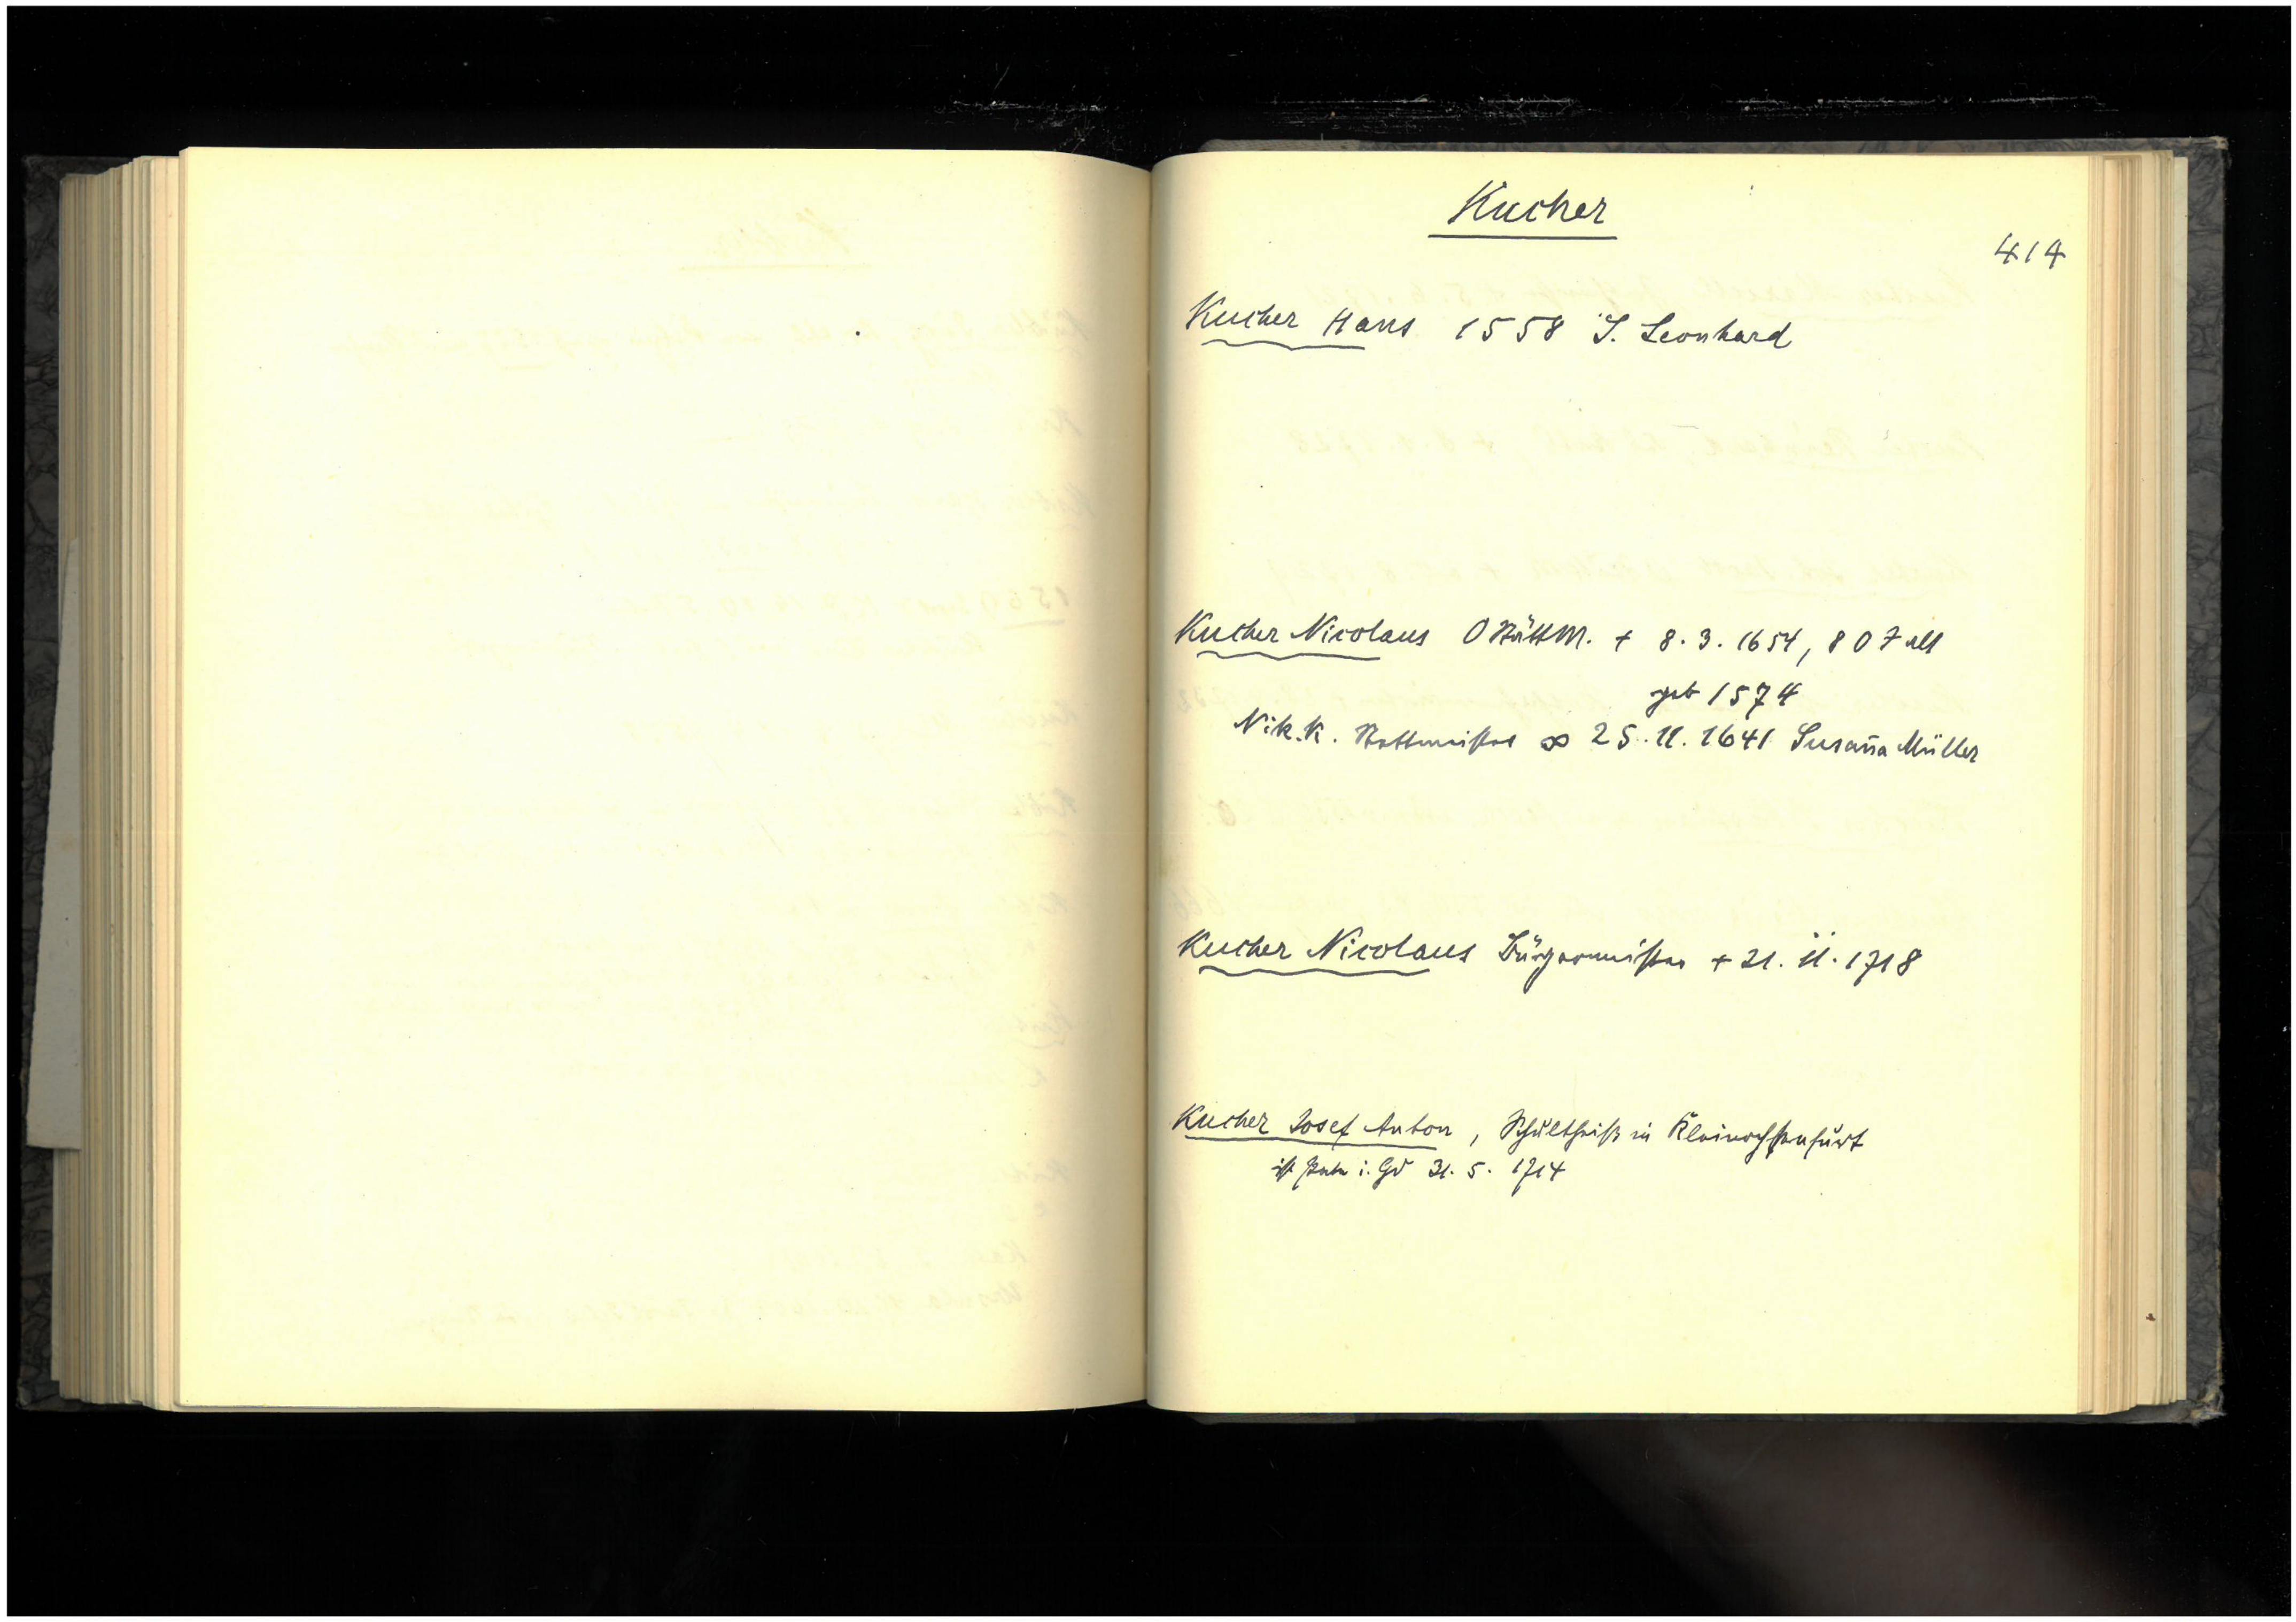 Kucher
414
Kucher Hans 1558 S. Leonhard
Kucher Nicolaus O RättM. + 8.3.1654, 80 J alt
geb 1574
Nik. K. Rottmeister ∞ 25.11.1641 Susan̄a Müller
Kucher Nicolaus Bürgermeister + 21.11.1718
Kucher Josef Anton, Schultheiß in Kleinochsenfurt
ist Pate i. Gd 31.5.1714